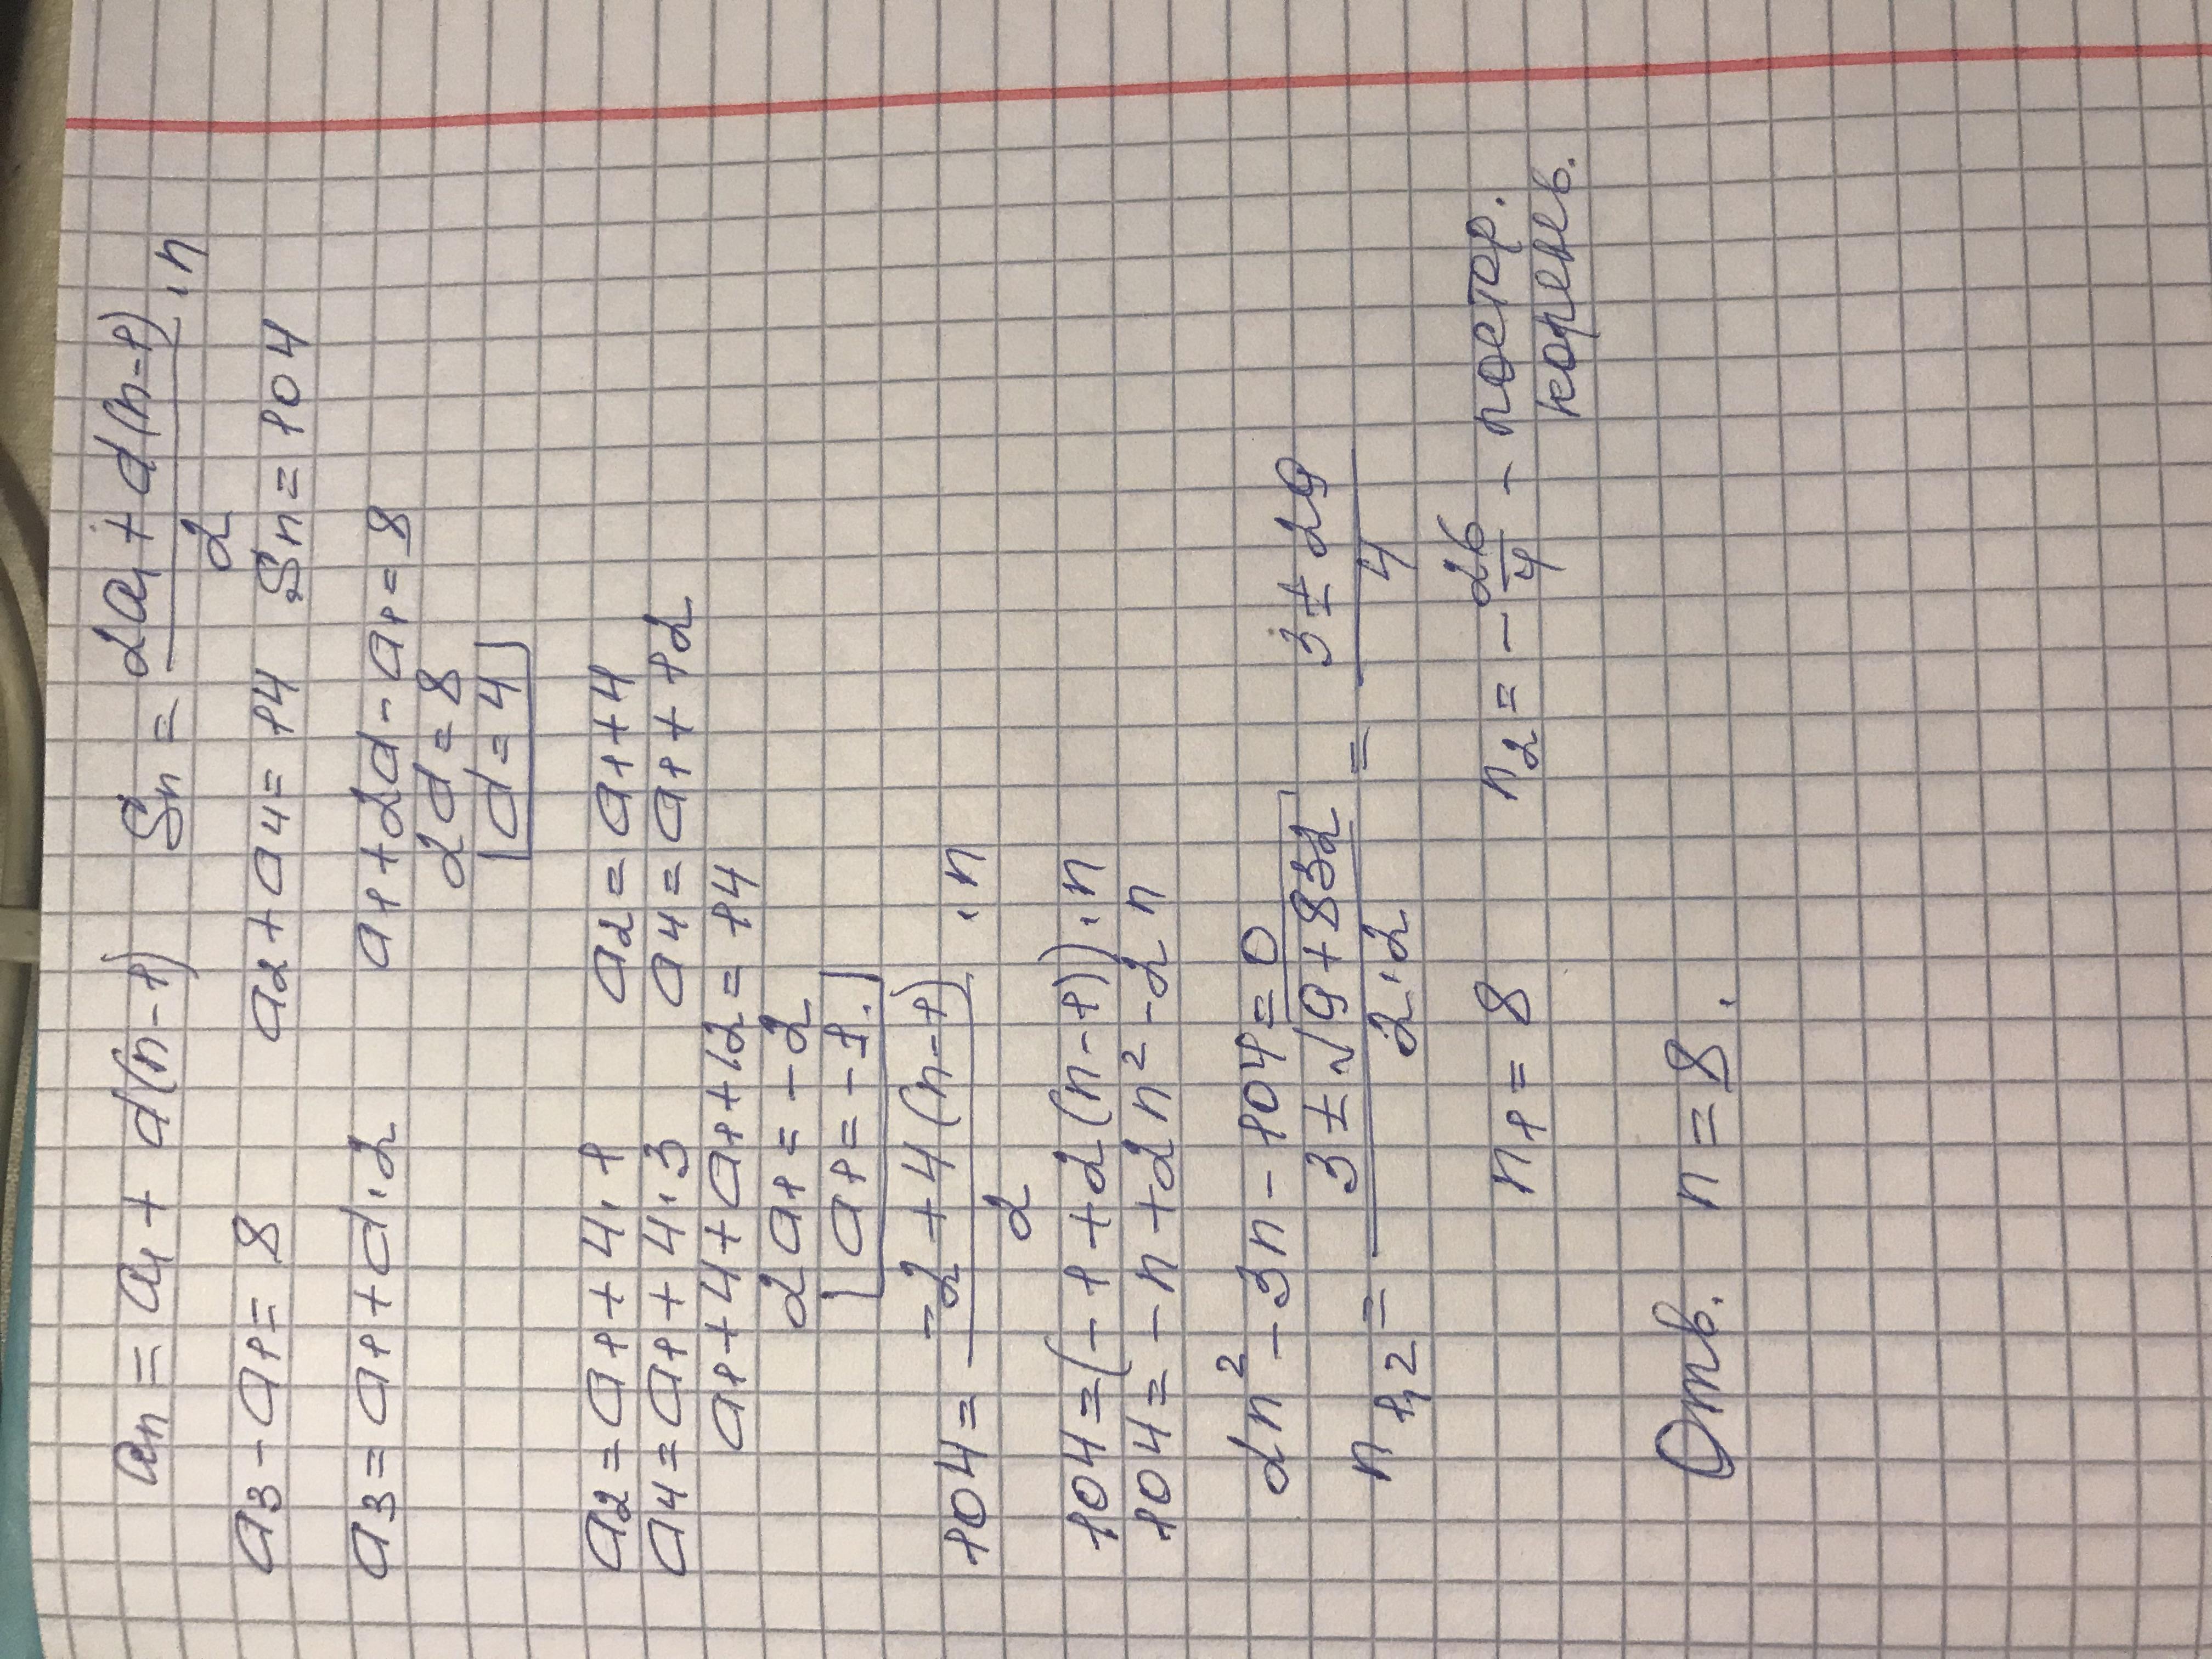 aₙ = a₁ + d(n-1) Sₙ = (2a₁ + d(n-1))/2 · n
a₃ - a₁ = 8 a₂ + a₄ = 14 Sₙ = 104
a₃ = a₁ + d·2 a₁ + 2d - a₁ = 8
2d = 8
d = 4
a₂ = a₁ + 4·1 a₂ = a₁ + 4
a₄ = a₁ + 4·3 a₄ = a₁ + 12
a₁ + 4 + a₁ + 12 = 14
2a₁ = -2
a₁ = -1.
104 = (-2 + 4(n-1))/2 · n
104 = (-1 + 2(n-1))·n
104 = -n + 2n² - 2n
2n² - 3n - 104 = 0
n₁,₂ = (3 ± √(9 + 832))/(2·2) = (3 ± 29)/4
n₁ = 8 n₂ = -26/4 - постор.
корень.
Отв. n = 8.